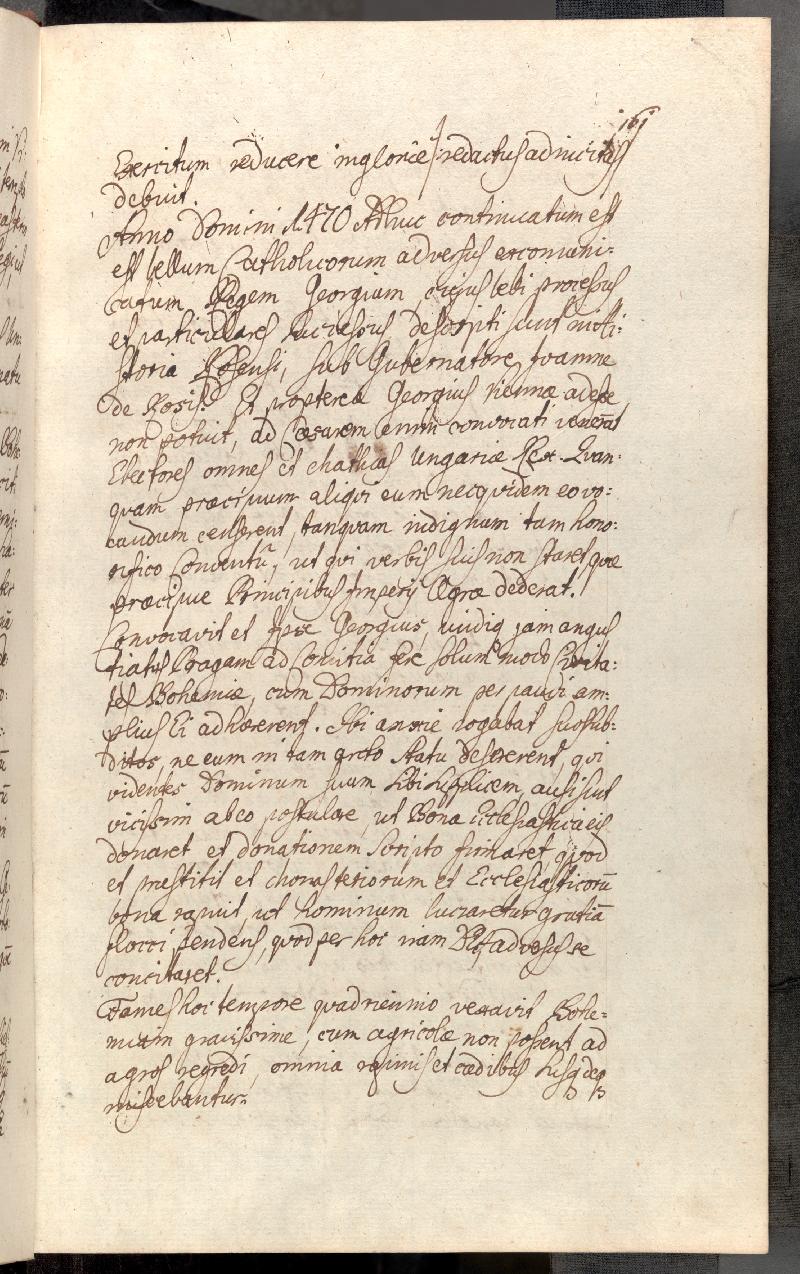 161
Exercitum reducere inglorie redactus ad incitas
debuit.
Anno Domini 1470 Adhuc continuatum est
est bellum Catholicorum adversus excomuni-
catum Regem Georgium, cujus belli processus
et particulares successus descripti sunt in Hi-
storia Rosensi, sub Gubernatore Joanne
de Rosis. Et propterea Georgius Viennæ adesse
non potuit, ad Cæsarem enim convocati venerãt
Electores omnes et Mathias Ungariæ Rex. Qvan-
qvam præcipuum aliqvi eum necqvidem eo vo-
candum censerent, tanqvam indignum tam hono-
rifico Conventũ, ut qui verbis suis non staret, qvæ
præcipue Principibus Imperij Egræ dederat.
Convocavit et Ipse Georgius, undiq jam angus
tiatus Pragam ad Comitia fere solum modo Civita-
tes Bohemiæ, cum Dominorum per pauci am-
plius Ei adhærerent. Ibi anxie rogabat suos sub-
ditos, ne eum in tam arcto statu desererent, qvi
videntes Dominum suum sibi suplicem, ausi sunt
vicissim ab eo postulare, ut Bona Ecclesiastica eis
donaret et donationem scripto firmaret, qvod
et præstitit et Monasteriorum et Ecclesiasticorũ
bona rapuit, ut hominum lucraretur gratiã
flocci pendens, qvod per hoc iram Dei adversus se
concitaret.
Fames hoc tempore qvadriennio vexavit Bohe-
miam gravissime, cum agricolæ non possent ad
agros regredi, omnia rapinis et cædibus susq deq
miscebantur.